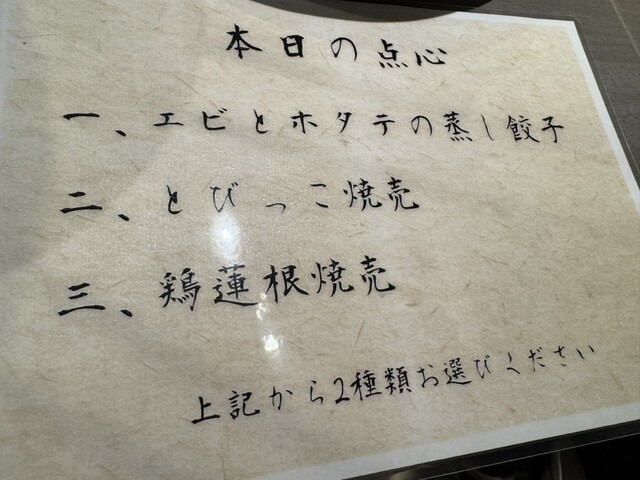 本日の点心
一、エビとホタテの蒸し餃子
二、とびっこ焼売
三、鶏蓮根焼売
上記から2種類お選びください